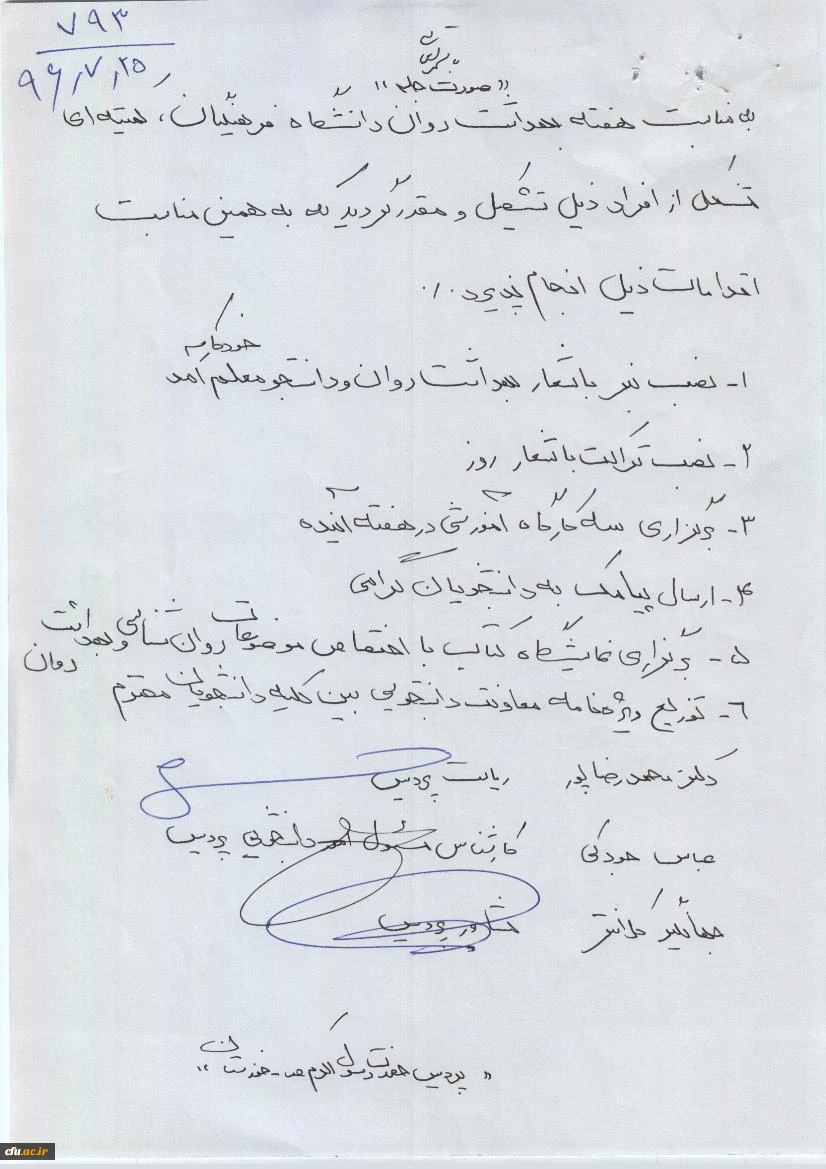 ۷۹۳
۹۶/۷/۲۵
"صورت جلسه"
به مناسبت هفته بهداشت روان دانشگاه فرهنگیان، کمیته ای
متشکل از افراد ذیل تشکیل و مقرر گردید که به همین مناسبت
اقدامات ذیل انجام پذیرد ./.
۱- نصب بنر با شعار بهداشت روان و دانشجو معلم خودکارآمد
۲- نصب تراکت با شعار روز
۳- برگزاری سه کارگاه آموزشی در هفته آینده
۴- ارسال پیامک به دانشجویان گرامی
۵- برگزاری نمایشگاه کتاب با اختصاص موضوعات روان شناسی و بهداشت روان
۶- توزیع ویژه نامه معاونت دانشجویی بین کلیه دانشجویان محترم
دکتر محمدرضاپور ریاست پردیس
عباس جودکی کارشناس مسئول امور دانشجویی پردیس
جهانگیر کلانتر مشاور پردیس
"پردیس حضرت رسول اکرم ص - خوزستان"
cfu.ac.ir